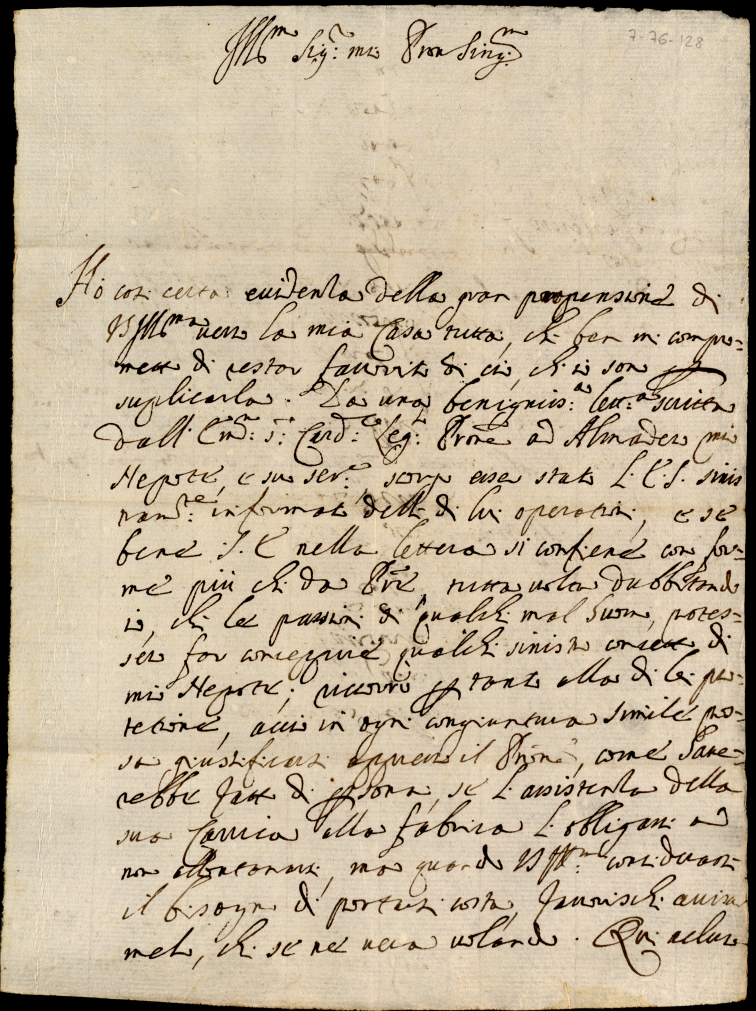 7-76-128
Ill.mo Sig.r mio Pron Sing.mo
Ho così certa evidenza della gran propensione di
VS Ill.ma verso la mia Casa tutta, che ben mi compro=
metto di restar favorito di ciò, che io son p
suplicarla. Da una benignis.a lett.a scritta
dall' Em.o s.r Card.e Leg.o Prone ad Almadero mio
Nepote, e suo ser.e, scorgo esser stato L. E. S. sinis
ram.te informato delle di lui operationi, e se
bene S. E. nella lettera si contiene con for=
me più che da Pre, tutta volta dubbitando
io, che le passioni di qualche mal huomo, potes=
ser far concepire qualche sinistro concetto di
mio Nepote; ricorro p tanto alla di lei pro=
tetione, acciò in ogni congiuntura simile pos=
sa giustificarsi appresso il Prone, come sare=
rebbe fatto di psona, se l'assistenza della
sua Carica alla fabrica l'obligasse a
non allontanarsi, ma quando VS Ill.ma considerasse
il bisogno di portarsi costà, favorischi avisar
melo, che se ne verrà volando. Qui